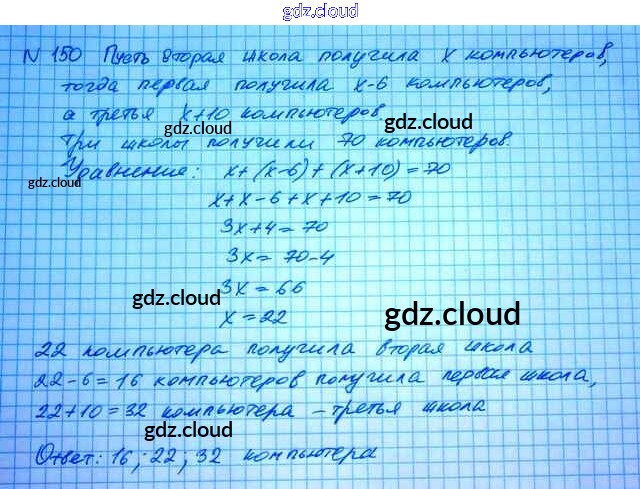 gdz.cloud
N 150 Пусть вторая школа получила x компьютеров,
тогда первая получила x-6 компьютеров,
а третья x+10 компьютеров.
gdz.cloud
gdz.cloud
Три школы получили 70 компьютеров.
Уравнение: x + (x-6) + (x+10) = 70
gdz.cloud
x+x-6+x+10=70
3x+4=70
3x = 70-4
3x = 66
gdz.cloud
x = 22
gdz.cloud
22 компьютера получила вторая школа
22-6=16 компьютеров получила первая школа,
22+10=32 компьютера - третья школа
gdz.cloud
Ответ: 16; 22; 32 компьютера